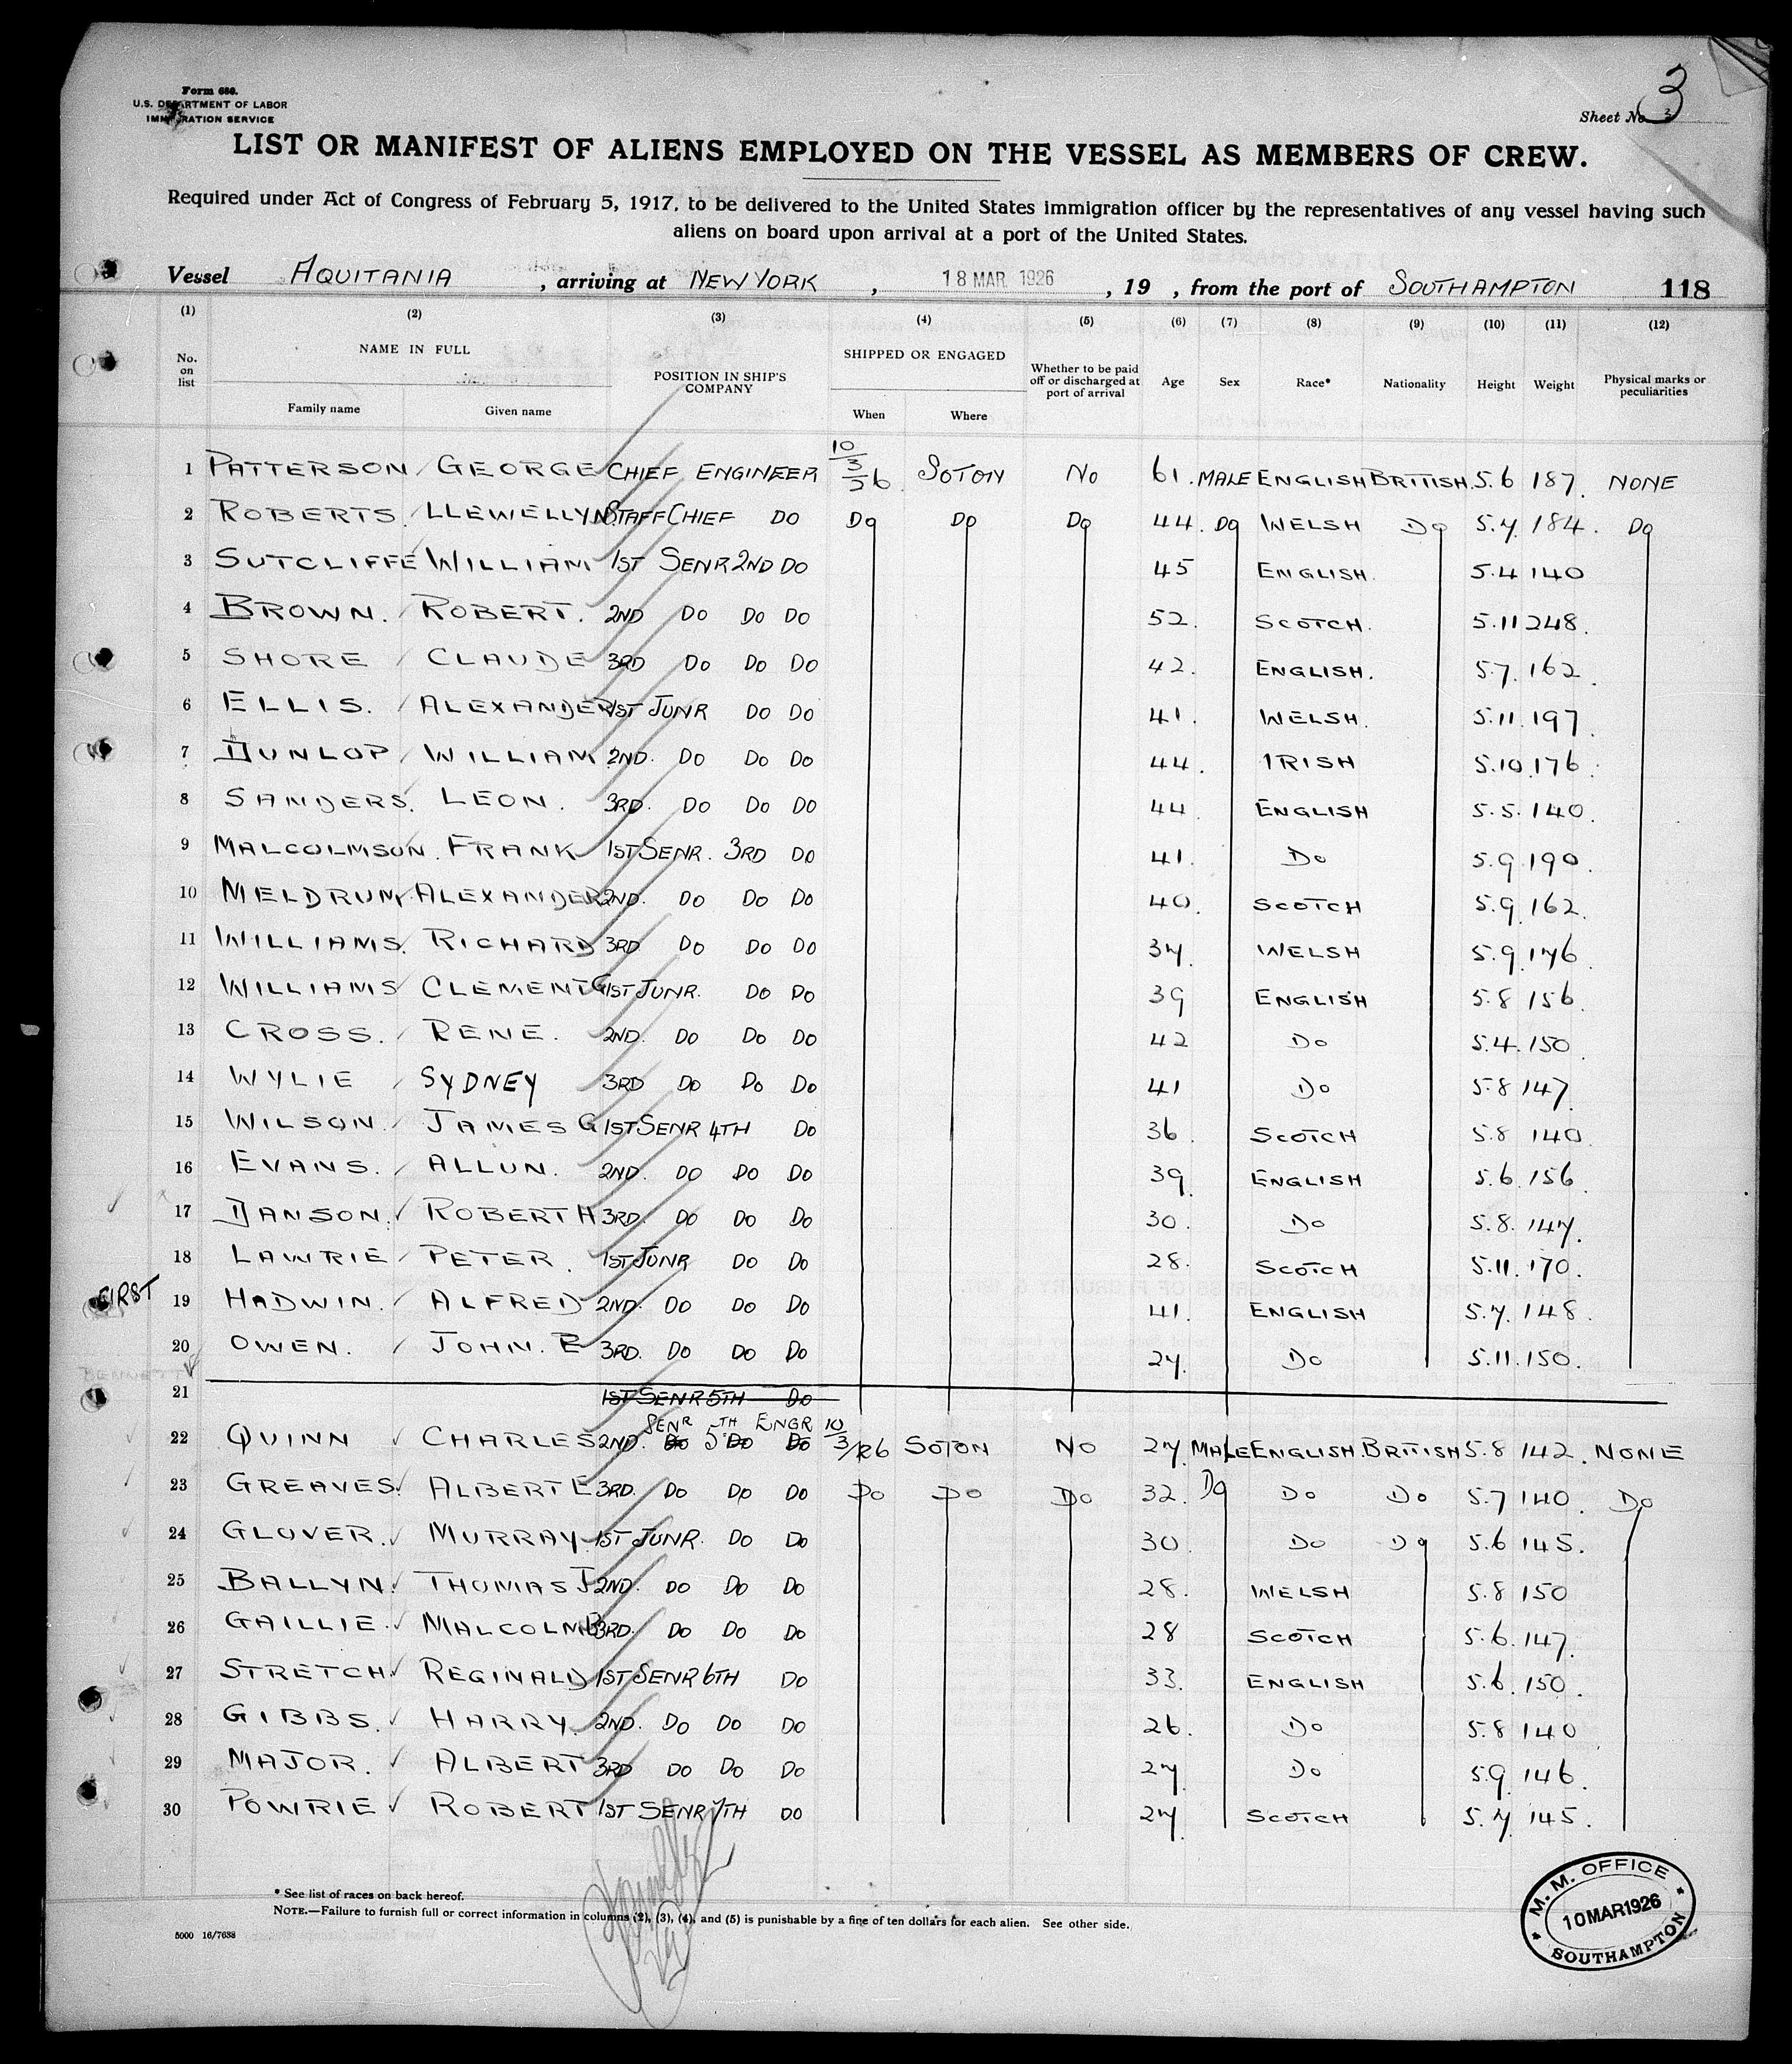 Form 680.
U.S. DEPARTMENT OF LABOR
IMMIGRATION SERVICE
Sheet No. 3
3
LIST OR MANIFEST OF ALIENS EMPLOYED ON THE VESSEL AS MEMBERS OF CREW.
Required under Act of Congress of February 5, 1917, to be delivered to the United States immigration officer by the representatives of any vessel having such
aliens on board upon arrival at a port of the United States.
Vessel AQUITANIA , arriving at NEW YORK , 18 MAR. 1926 , 19 , from the port of SOUTHAMPTON 118
(1) (2) (3) (4) (5) (6) (7) (8) (9) (10) (11) (12)
No. on list NAME IN FULL Family name Given name POSITION IN SHIP'S COMPANY SHIPPED OR ENGAGED When Where Whether to be paid off or discharged at port of arrival Age Sex Race* Nationality Height Weight Physical marks or peculiarities
1 PATTERSON GEORGE CHIEF ENGINEER 10/3/26 SOTON NO 61. MALE ENGLISH BRITISH. 5.6 187. NONE
2 ROBERTS. LLEWELLYN. STAFF CHIEF DO DO DO DO 44. DO WELSH DO 5.7. 184. DO
3 SUTCLIFFE WILLIAM 1ST SENR 2ND DO 45 ENGLISH. 5.4 140
4 BROWN. ROBERT. 2ND DO DO DO 52. SCOTCH. 5.11 248.
5 SHORE CLAUDE 3RD DO DO DO 42. ENGLISH. 5.7. 162.
6 ELLIS. ALEXANDER 1ST JUNR DO DO 41. WELSH. 5.11. 197.
7 DUNLOP WILLIAM 2ND. DO DO DO 44. IRISH 5.10. 176.
8 SANDERS. LEON. 3RD. DO DO DO 44 ENGLISH 5.5. 140.
9 MALCOLMSON. FRANK 1ST SENR. 3RD DO 41. DO 5.9. 190.
10 MELDRUM ALEXANDER 2ND. DO DO DO 40. SCOTCH 5.9. 162.
11 WILLIAMS. RICHARD 3RD DO DO DO 37. WELSH 5.9. 176.
12 WILLIAMS CLEMENT G 1ST JUNR. DO DO 39 ENGLISH 5.8 156.
13 CROSS. RENE. 2ND. DO DO DO 42 DO 5.4. 150.
14 WYLIE SYDNEY 3RD DO DO DO 41 DO 5.8 147.
15 WILSON. JAMES G 1ST SENR 4TH DO 36. SCOTCH 5.8 140.
16 EVANS. ALLUN. 2ND. DO DO DO 39. ENGLISH 5.6. 156.
17 DANSON. ROBERT H 3RD. DO DO DO 30. DO 5.8. 147.
18 LAWRIE PETER. 1ST JUNR DO DO 28. SCOTCH 5.11. 170.
FIRST
19 HADWIN. ALFRED 2ND. DO DO DO 41. ENGLISH 5.7. 148.
20 OWEN. JOHN. E 3RD. DO DO DO 27. DO 5.11. 150.
BENNETT
21 1ST SENR 5TH DO
SENR 5TH ENGR
22 QUINN CHARLES 2ND. DO DO DO 10/3/26 SOTON NO 27. MALE ENGLISH. BRITISH 5.8 142. NONE
23 GREAVES. ALBERT E 3RD. DO DO DO DO DO DO 32. DO DO DO 5.7 140. DO
24 GLOVER. MURRAY. 1ST JUNR. DO DO 30. DO DO 5.6 145.
25 BALLYN. THOMAS J 2ND. DO DO DO 28. WELSH 5.8 150
26 GAILLIE. MALCOLM B 3RD. DO DO DO 28 SCOTCH 5.6. 147.
27 STRETCH REGINALD 1ST SENR 6TH DO 33. ENGLISH 5.6. 150.
28 GIBBS. HARRY. 2ND. DO DO DO 26. DO 5.8 140
29 MAJOR. ALBERT 3RD DO DO DO 27. DO 5.9 146.
30 POWRIE ROBERT 1ST SENR 7TH DO 27. SCOTCH 5.7. 145.
* See list of races on back hereof.
NOTE.—Failure to furnish full or correct information in columns (2), (3), (4), and (5) is punishable by a fine of ten dollars for each alien. See other side.
5000 16/7638
M. M. OFFICE
10 MAR 1926
SOUTHAMPTON